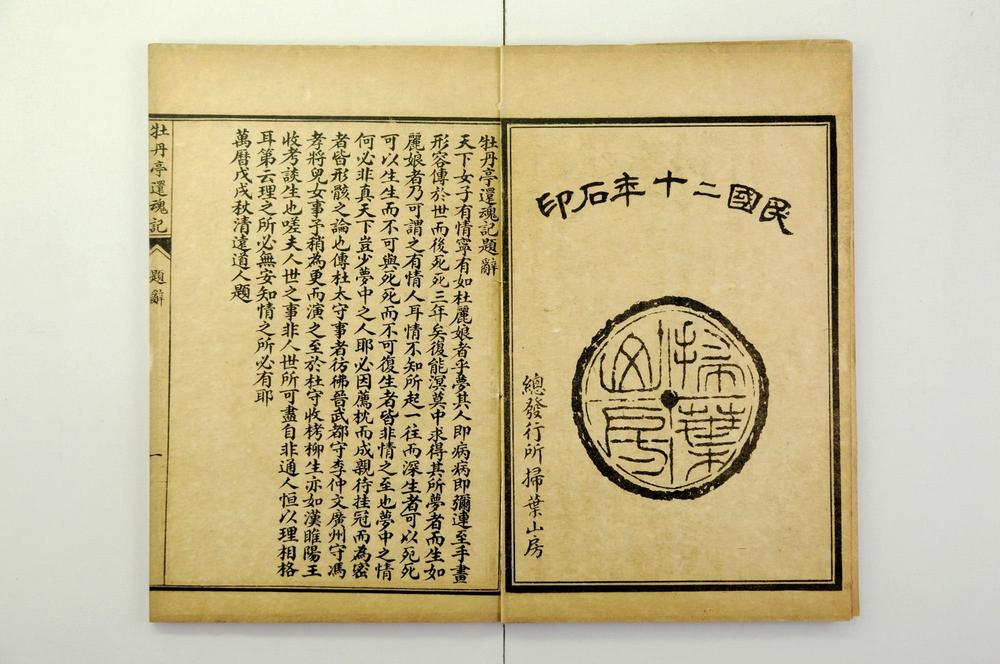 民國二十年石印
掃葉山房
總發行所掃葉山房
牡丹亭還魂記題辭
天下女子有情寧有如杜麗娘者乎夢其人即病病即彌連至手畫
形容傳於世而後死死三年矣復能溟莫中求得其所夢者而生如
麗娘者乃可謂之有情人耳情不知所起一往而深生者可以死死
可以生生而不可與死死而不可復生者皆非情之至也夢中之情
何必非真天下豈少夢中之人耶必因薦枕而成親待挂冠而為密
者皆形骸之論也傳杜太守事者彷彿晉武都守李仲文廣州守馮
孝將兒女事予稍為更而演之至於杜守收栲柳生亦如漢睢陽王
收考談生也嗟夫人世之事非人世所可盡自非通人恒以理相格
耳第云理之所必無安知情之所必有耶
萬曆戊戌秋清遠道人題
牡丹亭還魂記
題辭
一